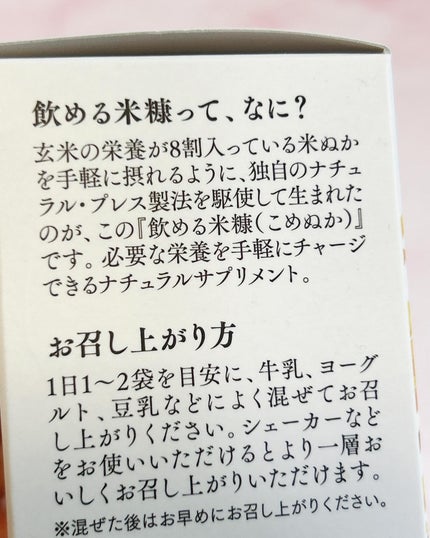 飲める米糠って、なに？
玄米の栄養が8割入っている米ぬか
を手軽に摂れるように、独自のナチュ
ラル・プレス製法を駆使して生まれた
のが、この『飲める米糠（こめぬか）』
です。必要な栄養を手軽にチャージ
できるナチュラルサプリメント。
お召し上がり方
1日1〜2袋を目安に、牛乳、ヨーグ
ルト、豆乳などによく混ぜてお召
し上がりください。シェーカーなど
をお使いいただけるとより一層お
いしくお召し上がりいただけます。
※混ぜた後はお早めにお召し上がりください。